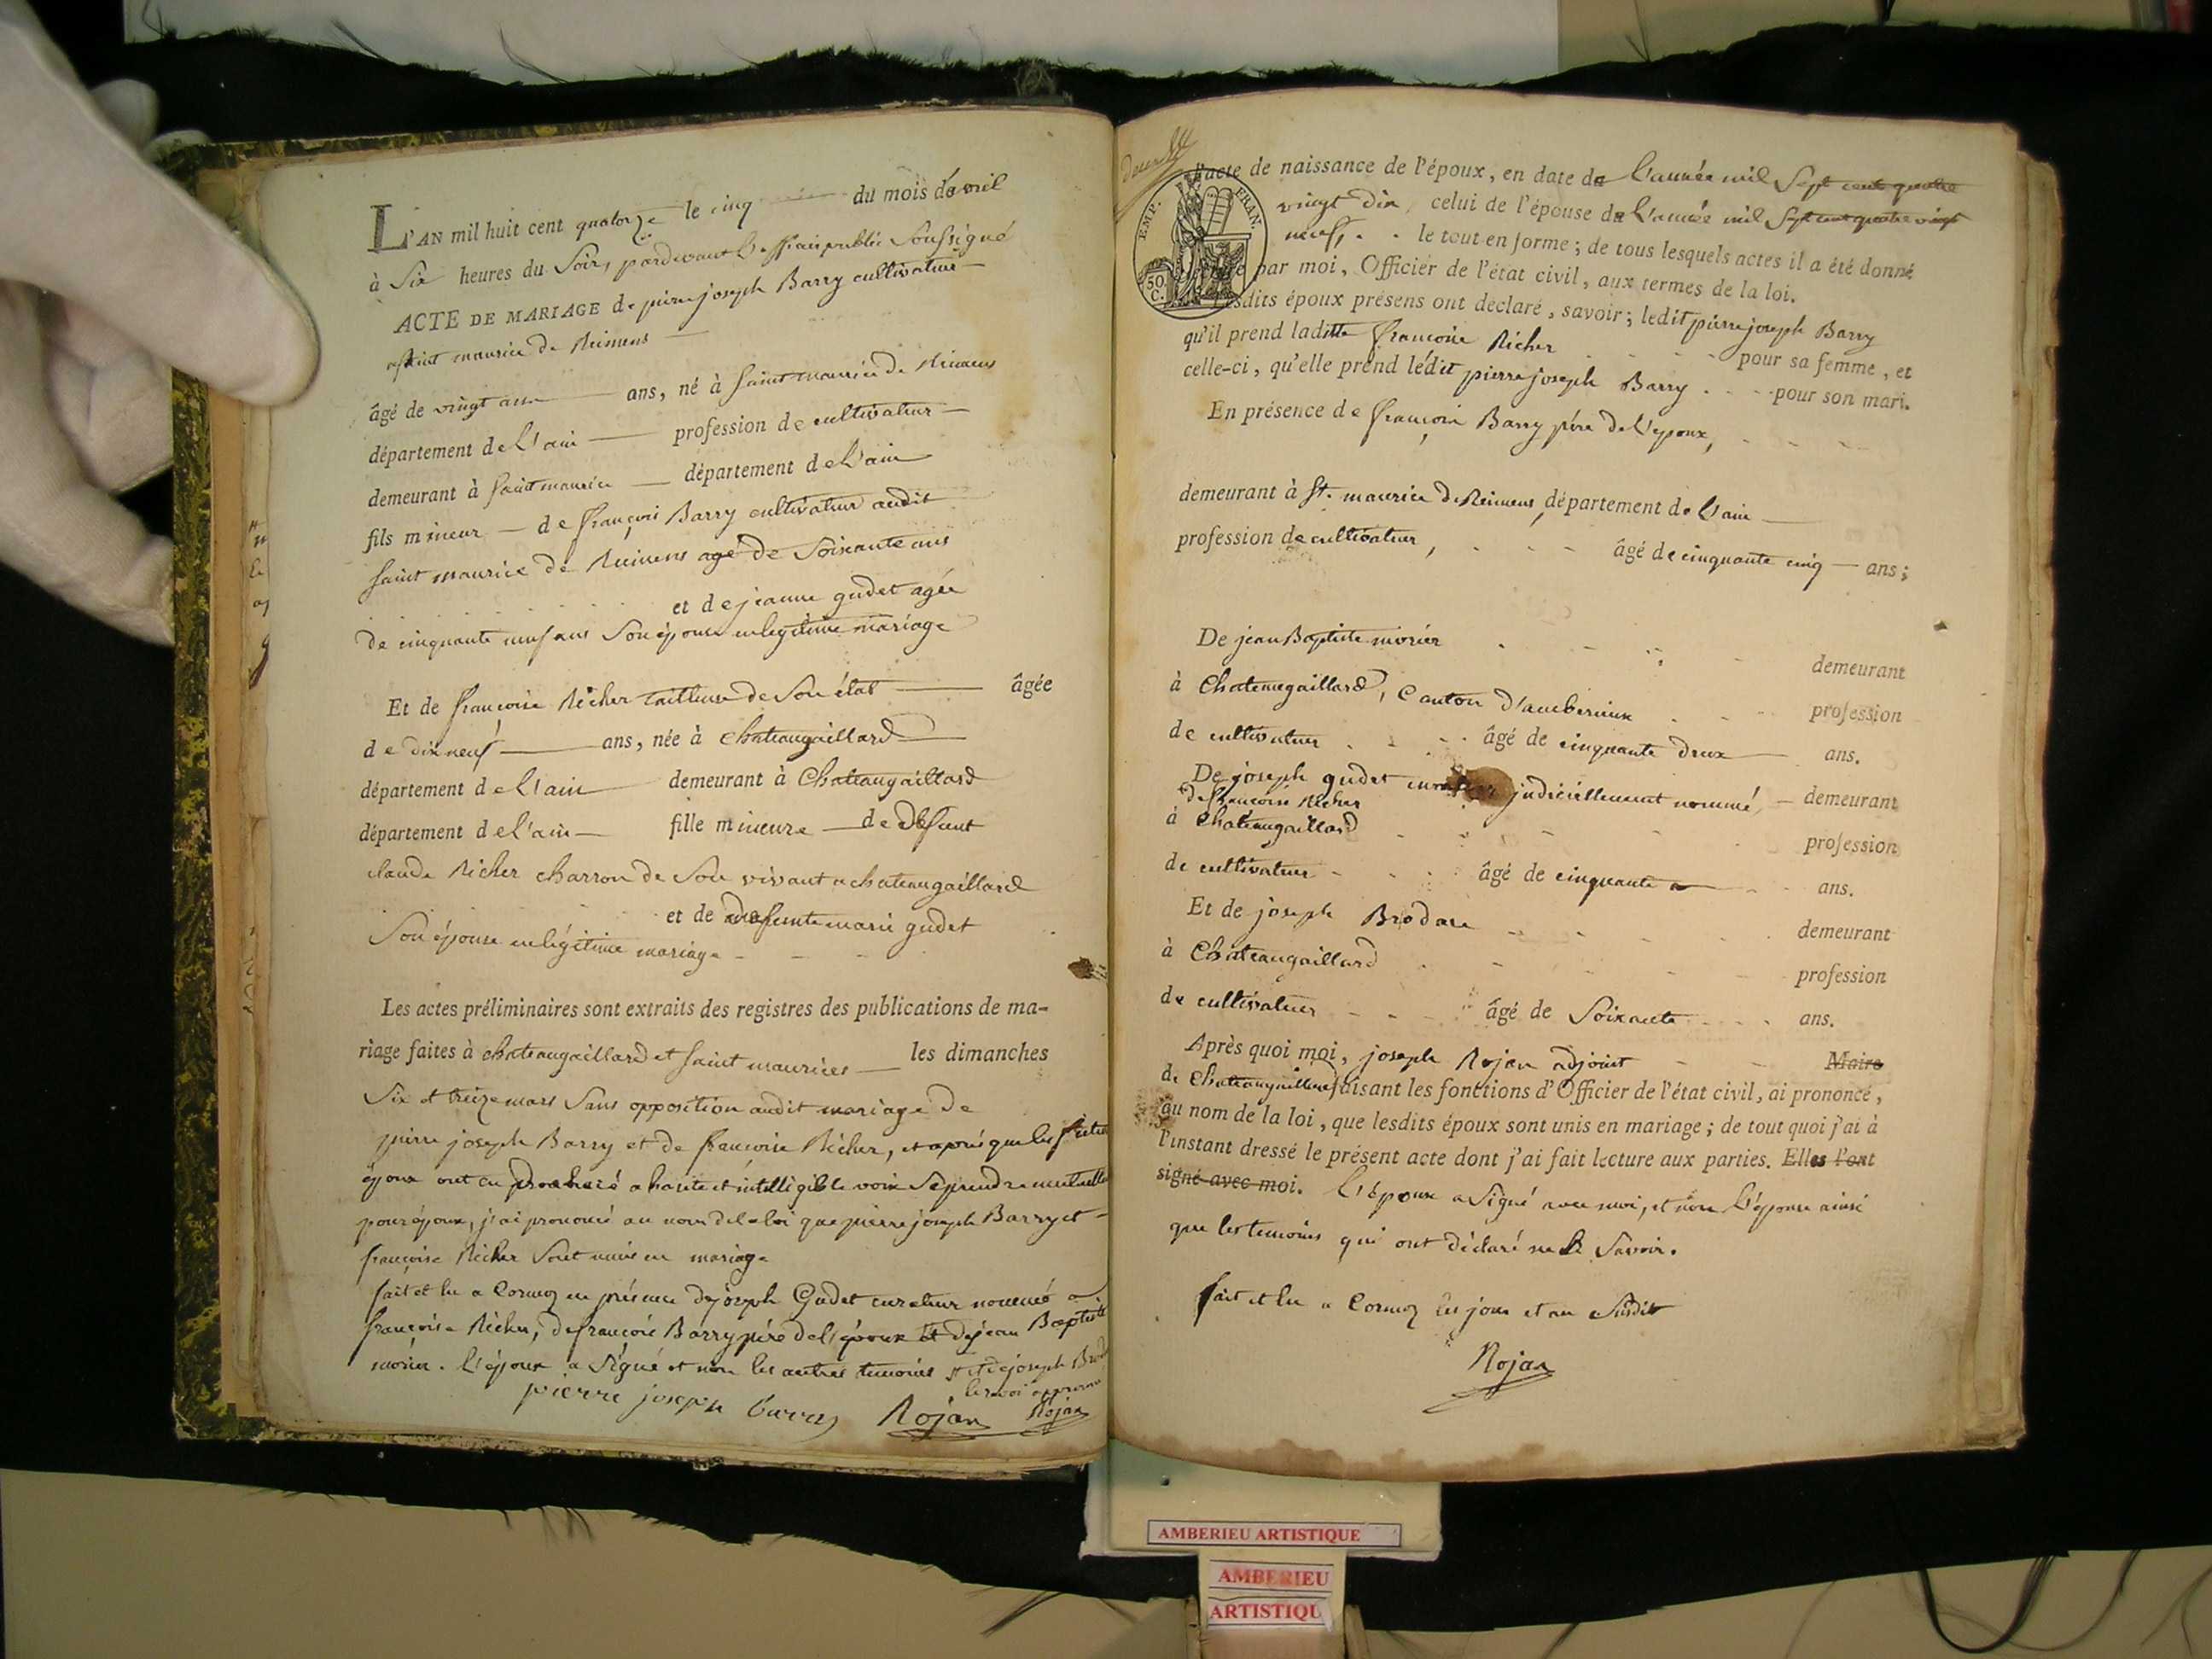 L'AN mil huit cent quatorze le cinq du mois d'avril
à Six heures du Soir, pardevant L'officier public Soussigné
ACTE DE MARIAGE de pierre joseph Barry cultivateur
a saint maurice de Reimens
âgé de vingt ans ans, né à saint maurice de Rimens
département de L'ain profession de cultivateur
demeurant à saint maurice département de L'ain
fils mineur de françois Barry cultivateur audit
saint maurice de Reimens agé de Soixante ans
et de jeanne gudet agée
de cinquante neuf ans Son épouse en legitime mariage
Et de francoise Richer tailleuse de Son état âgée
de dix neuf ans, née à chateaugaillard
département de L'ain demeurant à Chateaugaillard
département de L'ain fille mineure de Défunt
claude Richer charron de Son vivant a chateaugaillard
et de defunte marie gudet
Son épouse en légitime mariage
Les actes préliminaires sont extraits des registres des publications de ma-
riage faites à chateaugaillard et saint maurice les dimanches
Six et treize mars Sans opposition audit mariage de
pierre joseph Barry et de francoise Richer, et après que les futurs
époux ont eu prononcé a haute et intelligible voix Se prendre mutuelle
pour époux, j'ai prononcé au nom de la loi que pierre joseph Barry et
françoise Richer Sont unis en mariage
fait et lu a Cormoz en présence de joseph Gudet curateur nommé a
françoise Richer, de francois Barry père de l'époux et de jean Baptiste
morier. L'époux a Signé et non les autres temoins et de joseph Brod
le renvoi approuvé
pierre joseph barry Rojan Rojan
EMP. FRAN.
50. C.
L'acte de naissance de l'époux, en date de L'année mil Sept cent quatre
vingt dix, celui de l'épouse de L'année mil Sept cent quatre vingt
neuf, le tout en forme; de tous lesquels actes il a été donné
lecture par moi, Officier de l'état civil, aux termes de la loi.
Lesdits époux présens ont déclaré, savoir; ledit pierre joseph Barry
qu'il prend laditte francoise Richer pour sa femme, et
celle-ci, qu'elle prend lédit pierre joseph Barry pour son mari.
En présence de françois Barry père de L'epoux,
demeurant à St. maurice de Reimens, département de L'ain
profession de cultivateur, âgé de cinquante cinq ans;
De jean Baptiste morier demeurant
à Chateaugaillard, Canton d'amberieux profession
de cultivateur âgé de cinquante deux ans.
De joseph gudet curateur judiciellement nommé, demeurant
de francoise Richer
à Chateaugaillard profession
de cultivateur âgé de cinquante ans.
Et de joseph Brodare demeurant
à Chateaugaillard profession
de cultivateur âgé de Soixante ans.
Après quoi moi, joseph Rojan adjoint Maire
de Chateaugaillard faisant les fonctions d'Officier de l'état civil, ai prononcé,
au nom de la loi, que lesdits époux sont unis en mariage; de tout quoi j'ai à
l'instant dressé le présent acte dont j'ai fait lecture aux parties. Elles l'ont
signé avec moi. L'époux a Signé avec moi, et non L'épouse ainsi
que les temoins qui ont déclaré ne le Savoir.
fait et lu a Cormoz les jour et an Susdit
Rojan
AMBERIEU ARTISTIQUE
AMBERIEU
ARTISTIQU